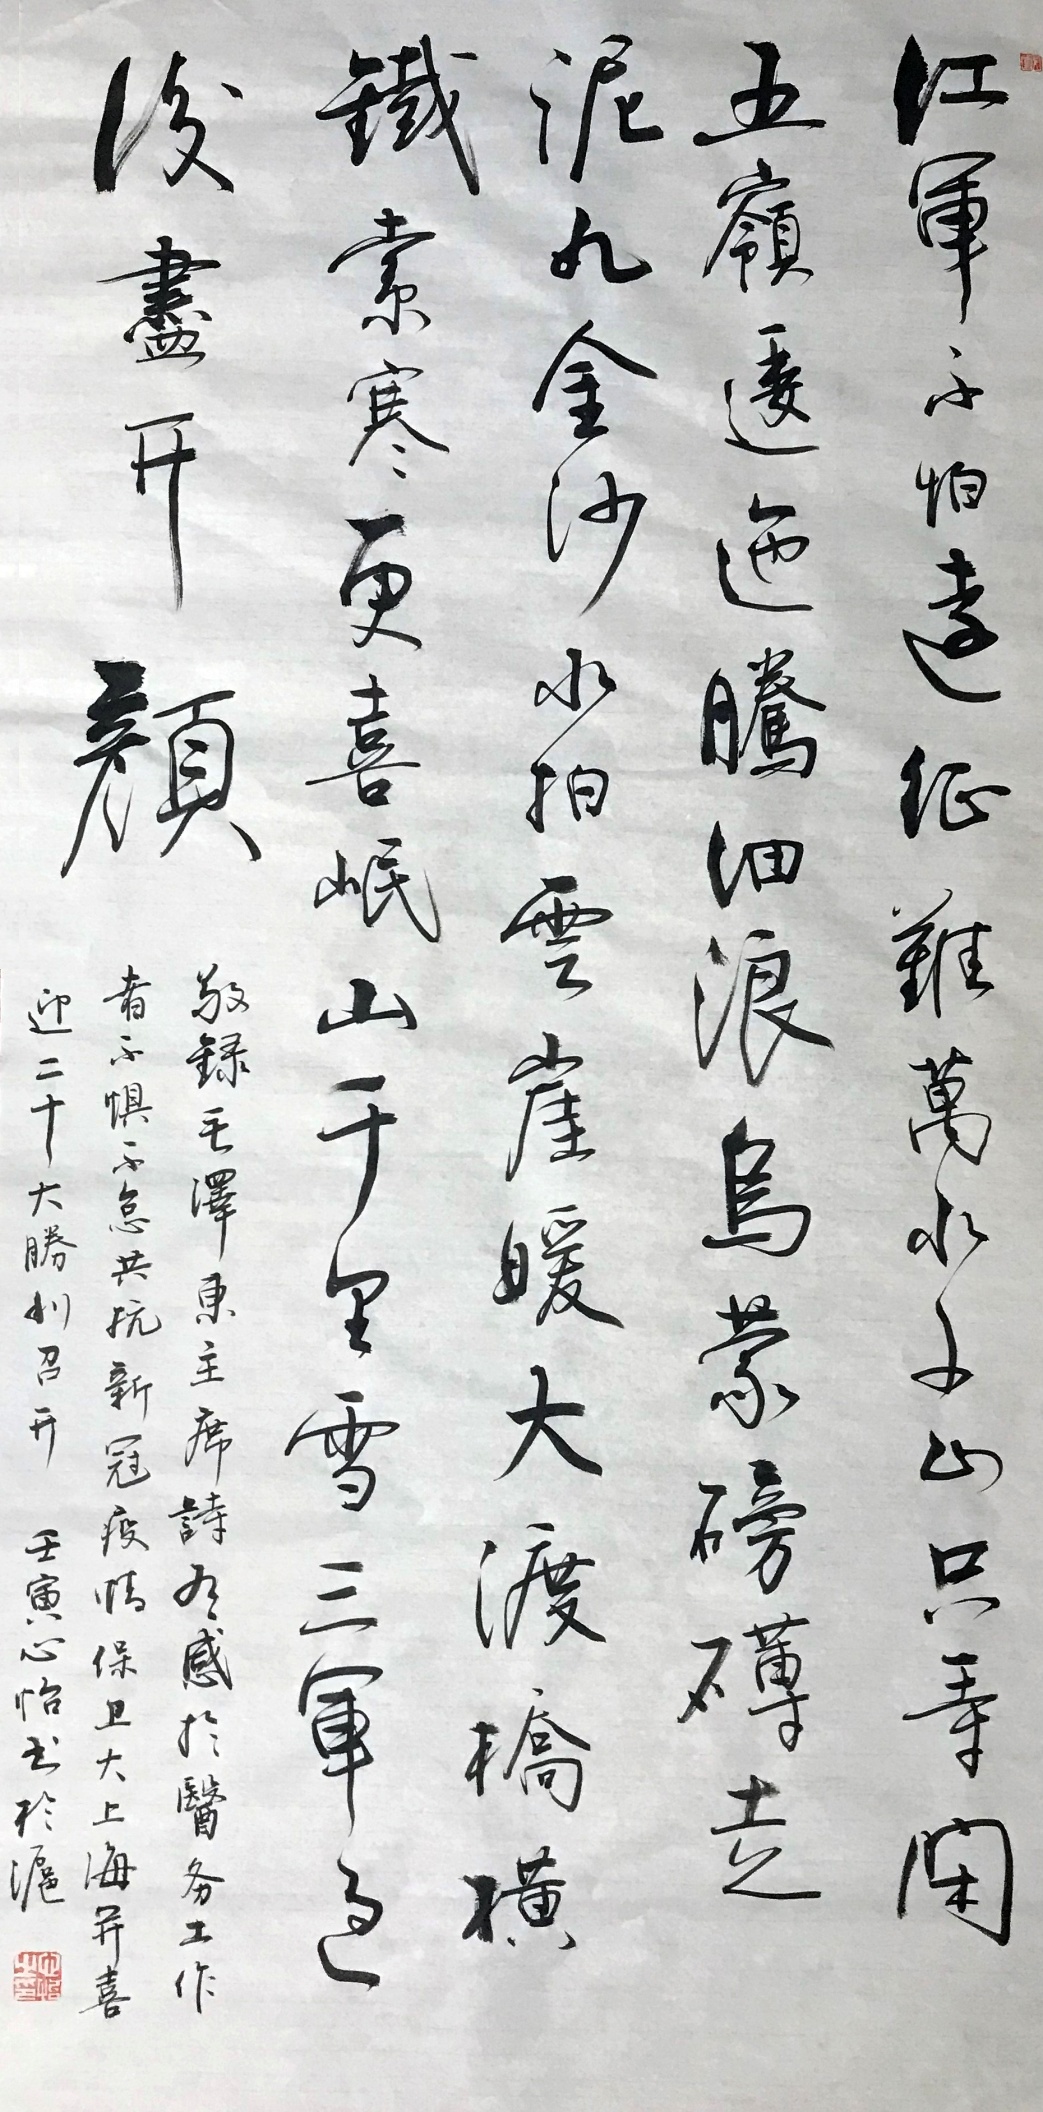 紅軍不怕遠征難萬水千山只等閑
五嶺逶迤騰細浪烏蒙磅礴走
泥丸金沙水拍雲崖暖大渡橋橫
鐵索寒更喜岷山千里雪三軍過
後盡开顏
敬録毛澤東主席詩有感於醫务工作
者不懼不怠共抗新冠疫情保卫大上海并喜
迎二十大勝利召开 壬寅心怡书於滬
心怡之印